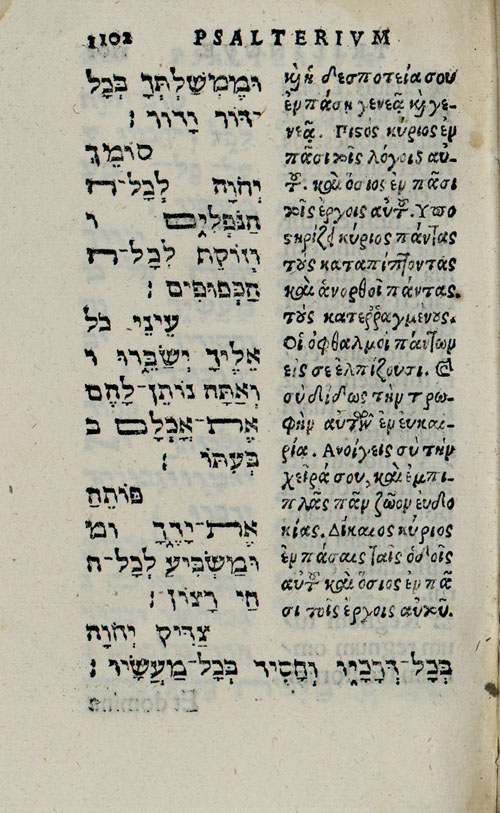 1102 PSALTERIVM
וּמֶמְשַׁלְתְּךָ בְּכָל
דּוֹר וָדוֹר׃
סוֹמֵךְ
יְהוָה לְכָל־ה
הַנֹּפְלִים ו
וְזוֹקֵף לְכָל־ה
הַכְּפוּפִים׃
עֵינֵי כֹל
אֵלֶיךָ יְשַׂבֵּרוּ ו
וְאַתָּה נוֹתֵן־לָהֶם
אֶת־אָכְלָם ב
בְּעִתּוֹ׃
פּוֹתֵחַ
אֶת־יָדֶךָ ומ
וּמַשְׂבִּיעַ לְכָל־ח
חַי רָצוֹן׃
צַדִּיק יְהוָה
בְּכָל־דְּרָכָיו וְחָסִיד בְּכָל־מַעֲשָׂיו׃
κỳ ἡ δεσποτεία σου
ἐν πάσῃ γενεᾷ κỳ γε-
νεᾷ. Πιςὸς κύριος ἐν
πᾶσι τοῖς λόγοις αὐ-
τοῦ. καὶ ὅσιος ἐν πᾶσι
τοῖς ἔργοις αὐτοῦ. Ὑπο
ςηρίζει κύριος πάντας
τοὺς καταπίπτοντας
καὶ ἀνορθοῖ πάντας
τοὺς κατερῥαγμένους.
Οἱ ὀφθαλμοὶ πάντων
εἰς σὲ ἐλπίζουσι. Καὶ
σὺ δίδως τὴν τρω-
φὴν αὐτῶν ἐν εὐκαι-
ρίᾳ. Ἀνοίγεις σὺ τὴν
χεῖρά σου, καὶ ἐμπι-
πλᾷς πᾶν ζῶον εὐδο
κίας. Δίκαιος κύριος
ἐν πάσαις ταῖς ὁδοῖς
αὐτοῦ καὶ ὅσιος ἐν πᾶ
σι τοῖς ἔργοις αὐτοῦ.